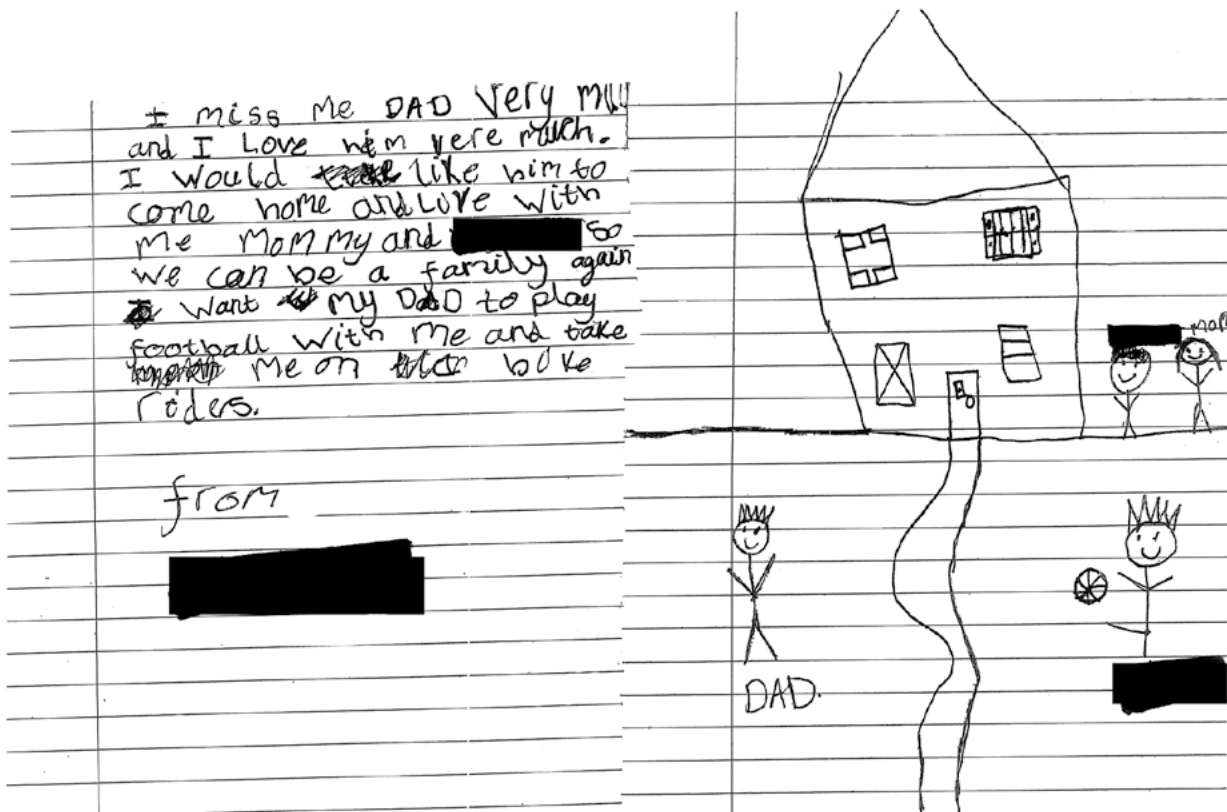 I miss me DAD very
and I Love him vere much.
I would like him to
come home and Live with
me mommy and so
we can be a family again
want my DAD to play
football with me and take
me on bike
riders.
from
mom
DAD.